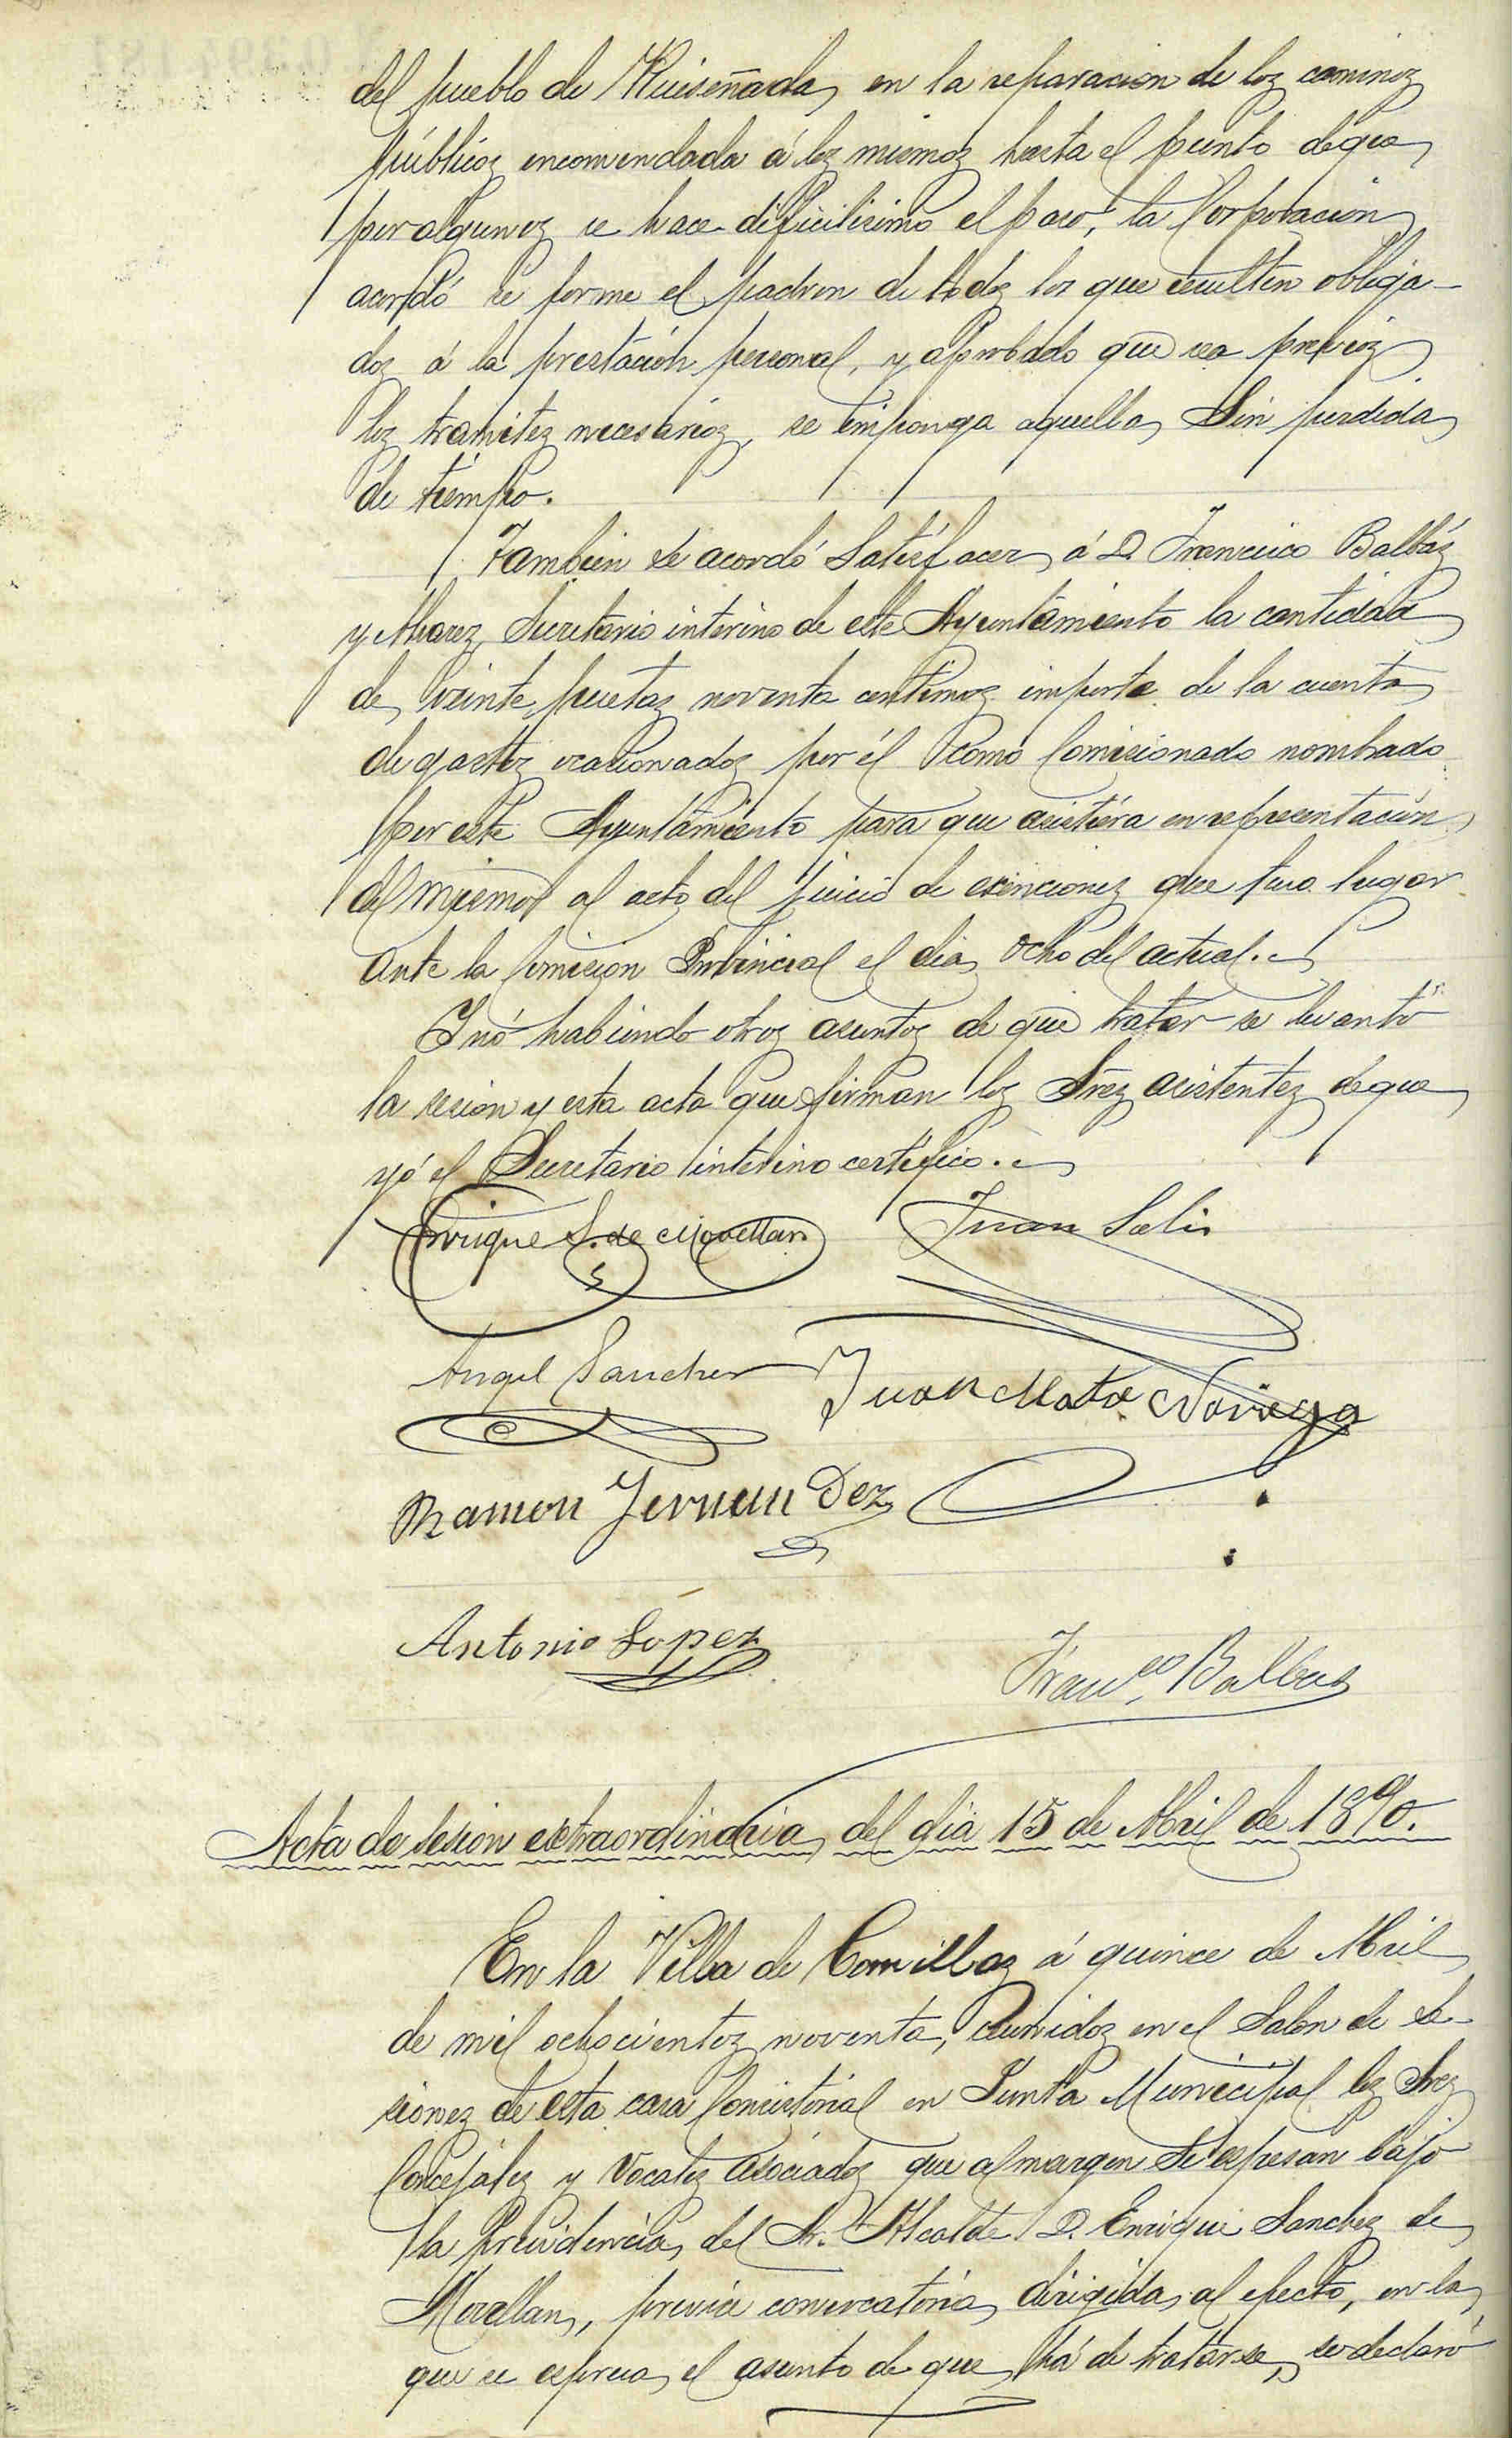 del pueblo de Ruiseñada, en la reparacion de los caminos
públicos encomendada á los mismos hasta el punto de que
por algunos se hace dificilisimo el paso, la Corporacion
acordó se forme el padron de todos los que resulten obliga-
dos á la prestación personal, y aprobado que sea previos
los tramites necesarios, se imponga aquella sin perdida
de tiempo.
Tambien se acordó satisfacer á D. Francisco Balbás
y Alvarez, Secretario interino de este Ayuntamiento la cantidad
de veinte pesetas noventa centimos importe de la cuenta
de gastos ocasionados por él como Comisionado nombrado
por este Ayuntamiento para que asistiera en representación
del mismo al acto del juicio de exenciones que tuvo lugar
ante la Comision Provincial el dia ocho del actual.
Y nó habiendo otros asuntos de que tratar se levantó
la sesion y esta acta que firman los Sres asistentes de que
yó el Secretario interino certifico.
Enrique S. de Movellan Juan Solis
Angel Sanchez Juan Mata Noriega
Ramon Fernandez
Antonio López
Franco Balbas
Acta de sesion extraordinaria del dia 15 de Abril de 1890.
En la Villa de Comillas á quince de Abril
de mil ochocientos noventa, reunidos en el Salon de se-
siones de esta casa Consistorial en Junta Municipal los Sres
Concejales y Vocales asociados que al margen se espresan bajo
la Presidencia del Sr. Alcalde D. Enrique Sanchez de
Movellan, previa convocatoria dirigida al efecto, en la
que se espresa el asunto de que há de tratarse, se declaró